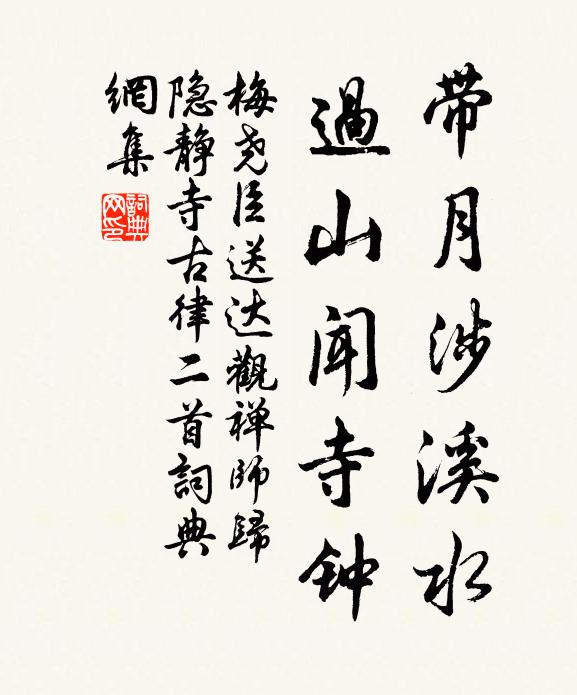 带月涉溪水
過山闻寺钟
梅尧臣送达觀禅师歸
隐静寺古律二首詞典
網集
詞典网印